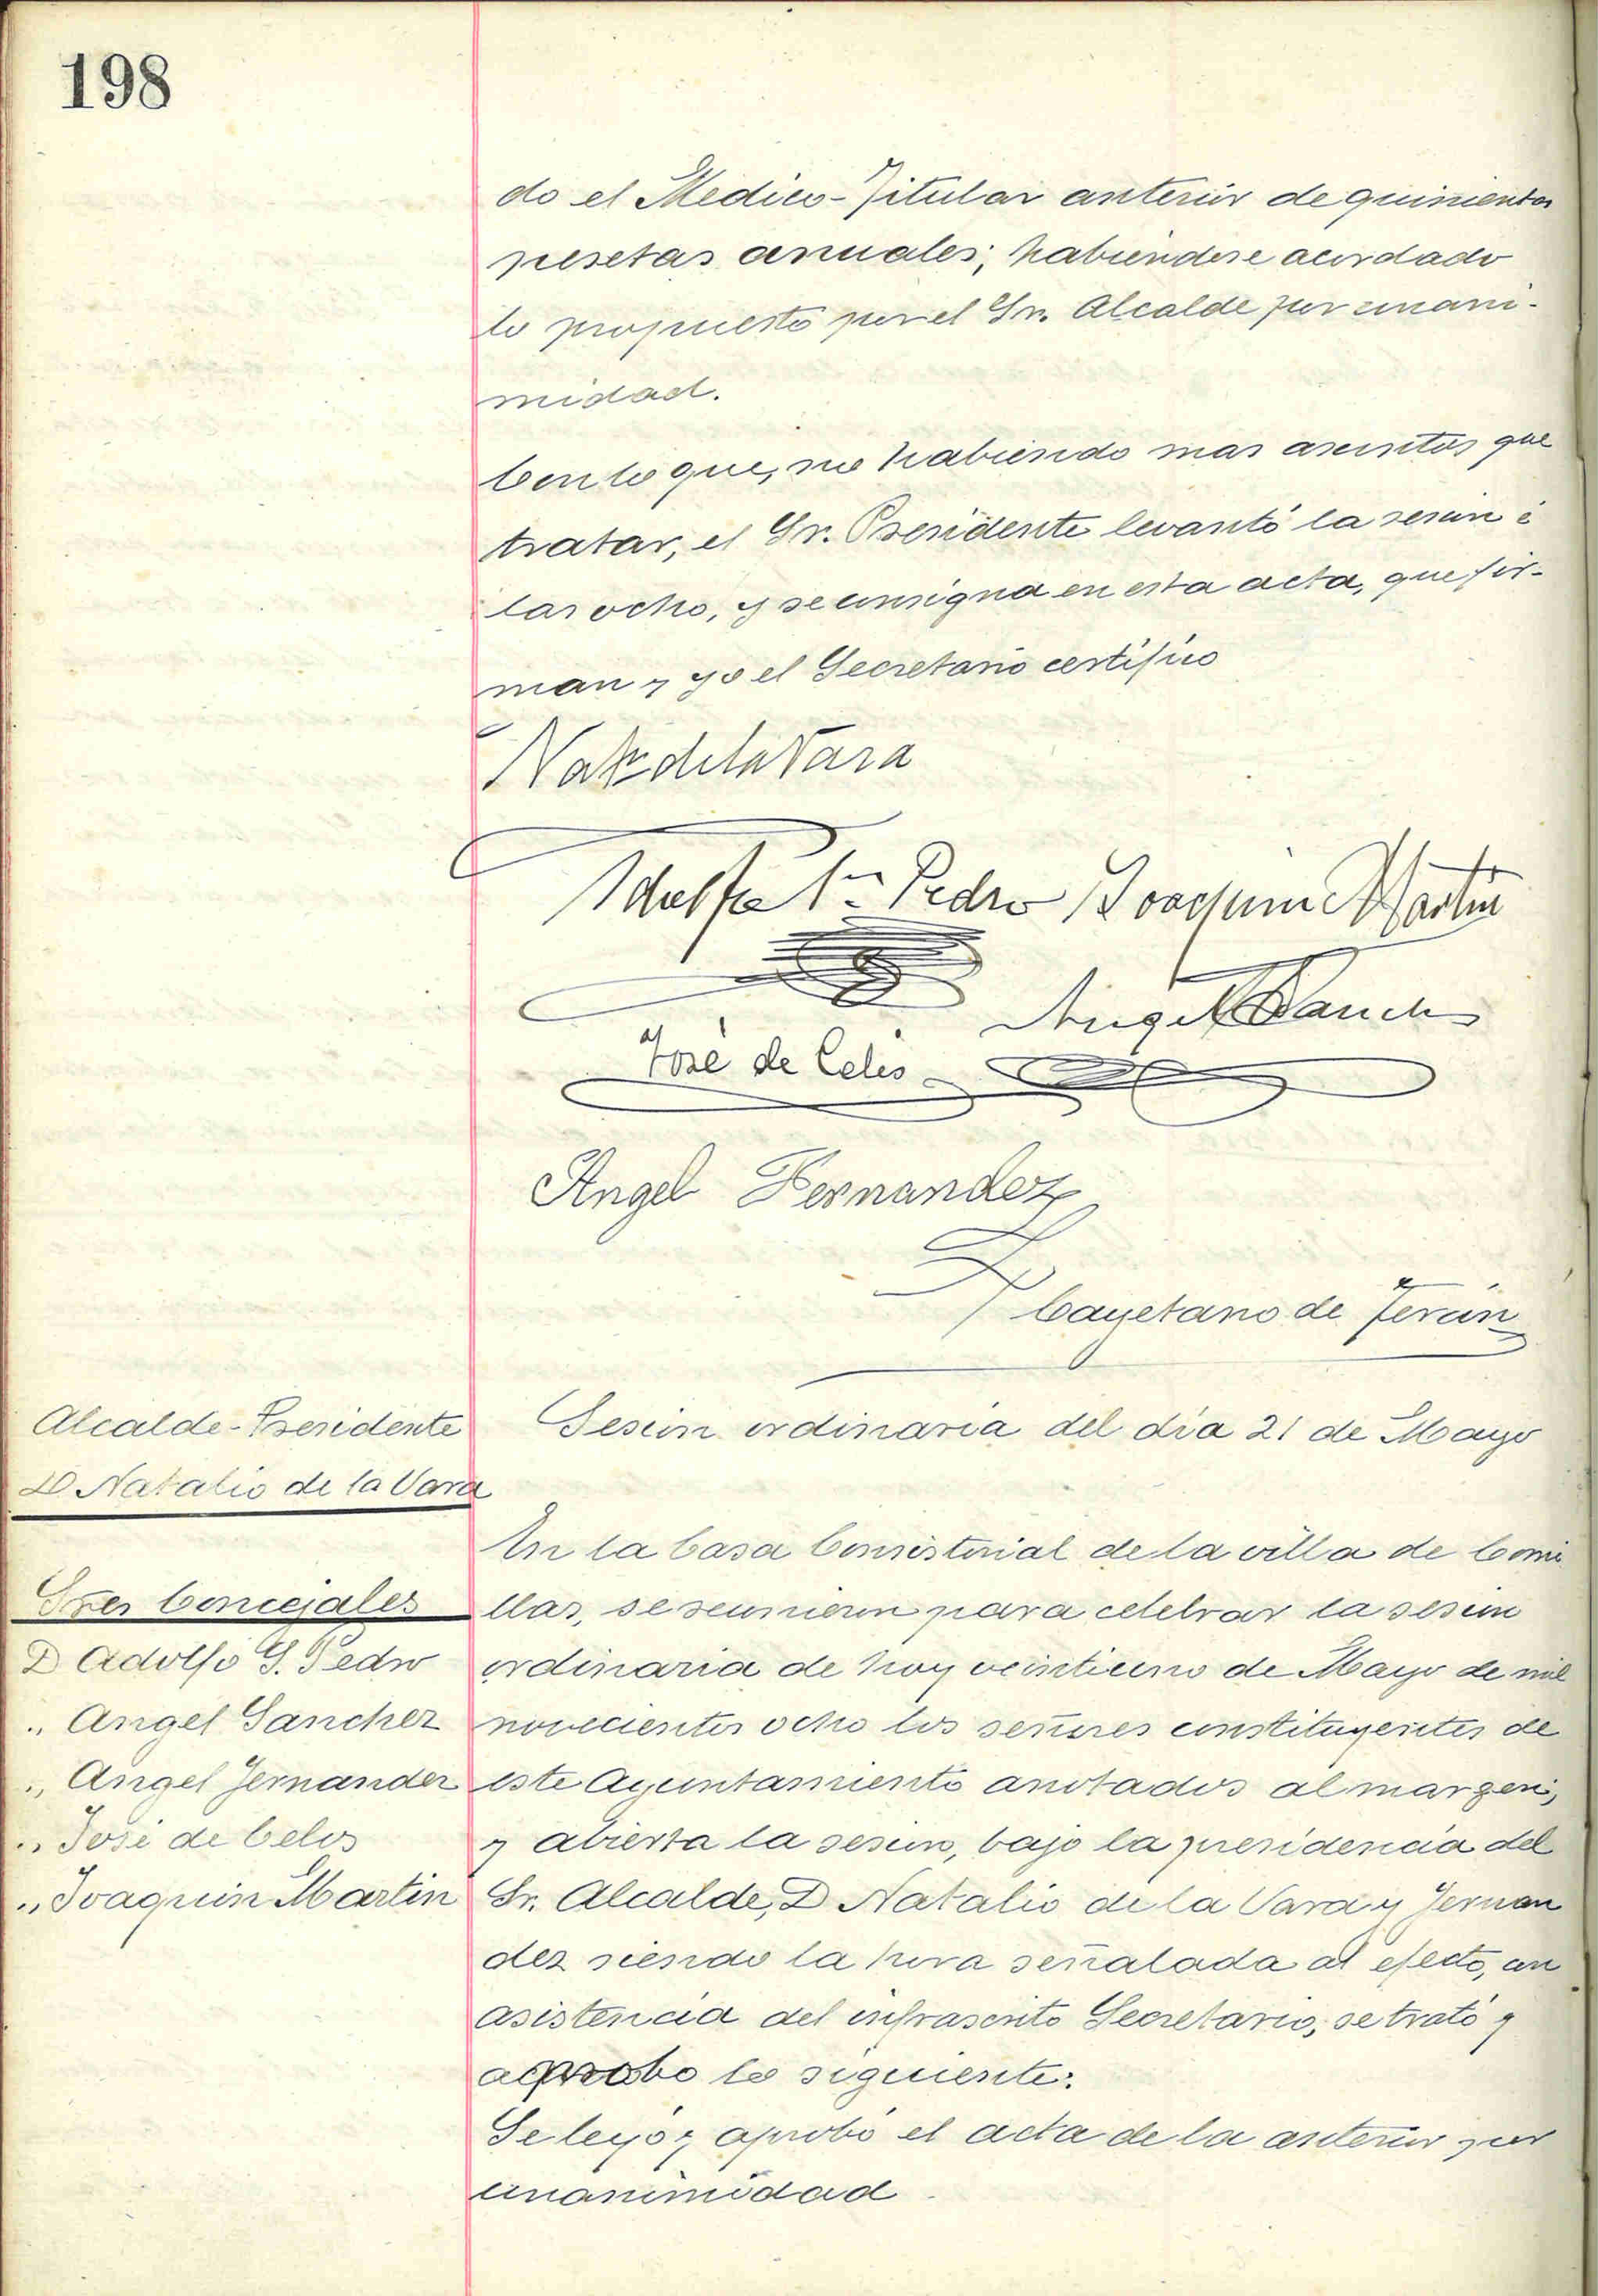 198
do el Medico-Titular anterior de quinientas
pesetas anuales; habiendose acordado
lo propuesto por el Sr. Alcalde por unani-
midad.
Con lo que, no habiendo mas asuntos que
tratar, el Sr. Presidente levantó la sesion á
las ocho, y se consigna en esta acta, que fir-
man y yo el Secretario certifico
Nat. de la Vara
Adolfo Sn Pedro Joaquin Martin
Angel Sanchez
José de Celis
Angel Fernandez
Cayetano de Terán
Alcalde-Presidente
D Natalio de la Vara
Sres Concejales
D Adolfo S. Pedro
„ Angel Sanchez
„ Angel Fernandez
„ José de Celis
„ Joaquin Martin
Sesion ordinaria del dia 21 de Mayo
En la Casa Consistorial de la villa de Comi
llas, se reunieron para celebrar la sesion
ordinaria de hoy veintiuno de Mayo de mil
novecientos ocho los señores constituyentes de
este Ayuntamiento anotados al margen;
y abierta la sesion, bajo la presidencia del
Sr. Alcalde, D Natalio de la Vara y Fernan
dez siendo la hora señalada al efecto, con
asistencia del infrascrito Secretario, se trató y
aprobo lo siguiente:
Se leyó y aprobó el acta de la anterior por
unanimidad